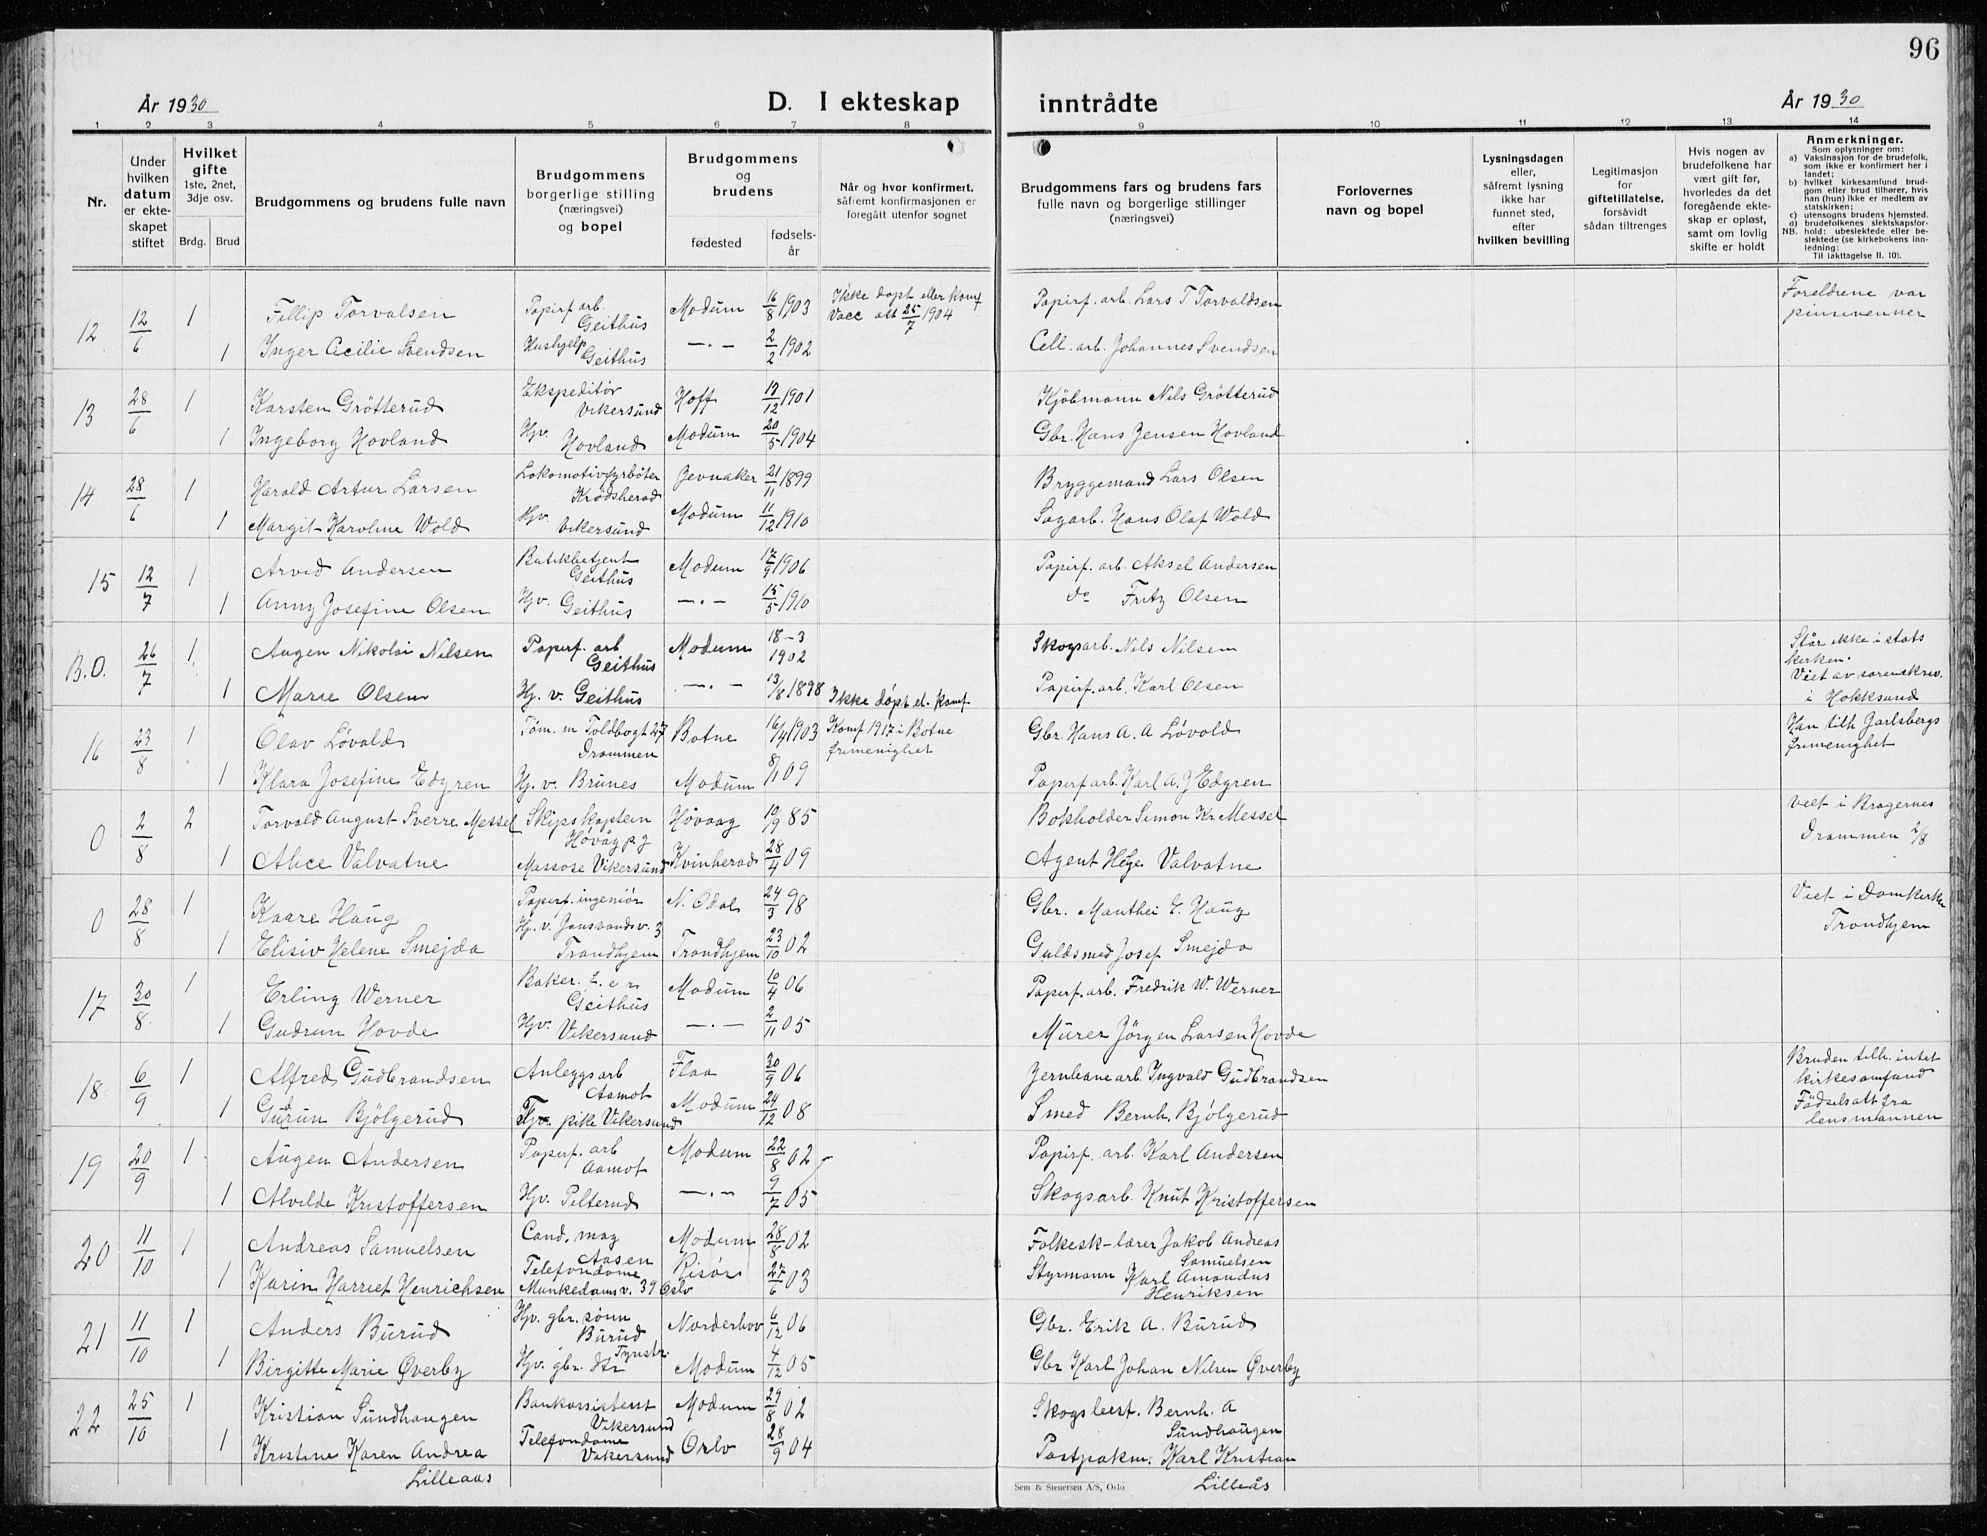 96
År 1930
D. I ekteskap inntrådte
År 1930
1 2 3 4 5 6 7 8 9 10 11 12 13 14
Nr.
Under hvilken datum er ekteskapet stiftet
Hvilket gifte
1ste, 2net, 3dje osv.
Brdg. Brud
Brudgommens og brudens fulle navn
Brudgommens borgerlige stilling (næringsvei) og bopel
Brudgommens og brudens
fødested
fødselsår
Når og hvor konfirmert, såfremt konfirmasjonen er foregått utenfor sognet
Brudgommens fars og brudens fars fulle navn og borgerlige stillinger (næringsvei)
Forlovernes navn og bopel
Lysningsdagen eller, såfremt lysning ikke har funnet sted, efter hvilken bevilling
Legitimasjon for giftetillatelse, forsåvidt sådan tiltrenges
Hvis nogen av brudefolkene har vært gift før, hvorledes da det foregående ekteskap er opløst, samt om lovlig skifte er holdt
Anmerkninger.
Som oplysninger om:
a) Vaksinasjon for de brudefolk, som ikke er konfirmert her i landet;
b) hvilket kirkesamfund brudgom eller brud tilhører, hvis han (hun) ikke er medlem av statskirken;
c) utensogns brudens hjemsted.
d) brudefolkenes slektskapsforhold: ubeslektede eller beslektede (se kirkebokens innledning:
NB. Til iakttagelse II. 10).
12 12/6 1 Fillip Torvalsen Papirf. arb. Geithus Modum 16/8 1903 Ikke døpt eller konf Vacc att 25/7 1904 Papirf. arb. Lars T Torvaldsen Foreldrene var pinsevenner
1 Inger Cecilie Svendsen Hushjelp Geithus —〃— 2/2 1902 Cell. arb. Johannes Svendsen
13 28/6 1 Karsten Grötterud Ekspeditör Vikersund Hoff 13/12 1901 Kjöbmann Nils Grötterud
1 Ingeborg Hovland Hjv. Hovland Modum 20/5 1904 Gbr. Hans Jensen Hovland
14 28/6 1 Harald Artur Larsen Lokomotivfyrbøter Krødsherad Jevnaker 21/11 1899 Bryggemand Lars Olsen
1 Margit Karoline Wold Hjv. Vikersund Modum 11/12 1910 Sagarb. Hans Olaf Wold
15 12/7 1 Arvid Andersen Butikbetjent Geithus Modum 17/9 1906 Papirf. arb. Aksel Andersen
1 Anny Josefine Olsen Hjv. Geithus —〃— 15/5 1910 do Fritz Olsen
B.O. 26/7 1 Augen Nikolai Nilsen Papirf. arb Geithus Modum 18-3 1902 Skogsarb. Nils Nilsen Står ikke i stats kirken. Viet av sorenskriv. i Hokksund
1 Marie Olsen Hj. v. Geithus —〃— 13/8 1898 Ikke døpt el. konf Papirf. arb. Karl Olsen
16 23/8 1 Olav Lövald Töm. m Toldbogt 27 Drammen Botne 16/4 1903 Konf 1917 i Botne frimenighet Gbr. Hans A. A Lövold Han tilh Jarlsbergs frimenighet
1 Klara Josefine Edgren Hj. v. Brunes Modum 8/1 09 Papirf arb. Karl A. J Edgren
0 2/8 2 Torvald August Sverre Messel Skipskaptein Høvåg p g Høvaag 10/9 85 Bokholder Simon Kr Messel viet i Bragernes Drammen 2/8
1 Alice Valvatne Massøse Vikersund Kvinherad 28/4 09 Agent Valvatne
0 28/8 1 Kaare Haug Papirf. ingeniör N. Odal 24/3 98 Gbr. Manthei E. Haug Viet i Domkirke Trondhjem
1 Elisiv Helene Smejda Hj. v. Jonsvandsv. 3 Trondhjem Trondhjem 23/10 02 Guldsmed Josef Smejda
17 30/8 1 Erling Werner Baker. Geithus Modum 10/4 06 Papirf. arb. Fredrik W. Werner
1 Gudrun Hovde Hjv. Vikersund —〃— 2/11 05 Murer Jörgen Larsen Hovde
18 6/9 1 Alfred Gudbrandsen Anleggsarb Aamot Flaa 30/9 06 Jernbanearb. Ingvald Gudbrandsen Bruden tilh. intet kirkesamfund Födselsatt fra lensmannen
1 Gudrun Bjölgerud pike Vikersund Modum 24/12 08 Smed Bernh. Bjölgerud
19 20/9 1 Augen Andersen Papirf. arb Aamot Modum 22/8 02 Papirf. arb. Karl Andersen
1 Alvilde Kristoffersen Hjv. Pelterud —〃— 9/7 05 Skogsarb. Knut Kristoffersen
20 11/10 1 Andreas Samuelsen Cand. mag Aasen Modum 28/8 02 Folkesk-lærer Jakob Andreas Samuelsen
1 Karin Harriet Henrichsen Telefondame Munkedamsv. 39 Oslo Risör 27/6 03 Styrmann Karl Amandus Henriksen
21 11/10 1 Anders Burud Hjv. gbr. sönn Burud Norderhov 6/12 06 Gbr. Erik A. Burud
1 Birgitte Marie Øverby Hjv. gbr. dtr Tyristr. Modum 4/12 05 Gbr Karl Johan Nilsen Øverby
22 25/10 1 Kristian Sundhaugen Bankassistent Vikersund Modum 29/8 02 Skogsbest. Bernh. A Sundhaugen
1 Kristine Karen Andrea Lilleaas Telefondame Vikersund Oslo 28/9 04 Postpakm. Karl Kristian Lilleås
Sem & Stenersen A/S, Oslo